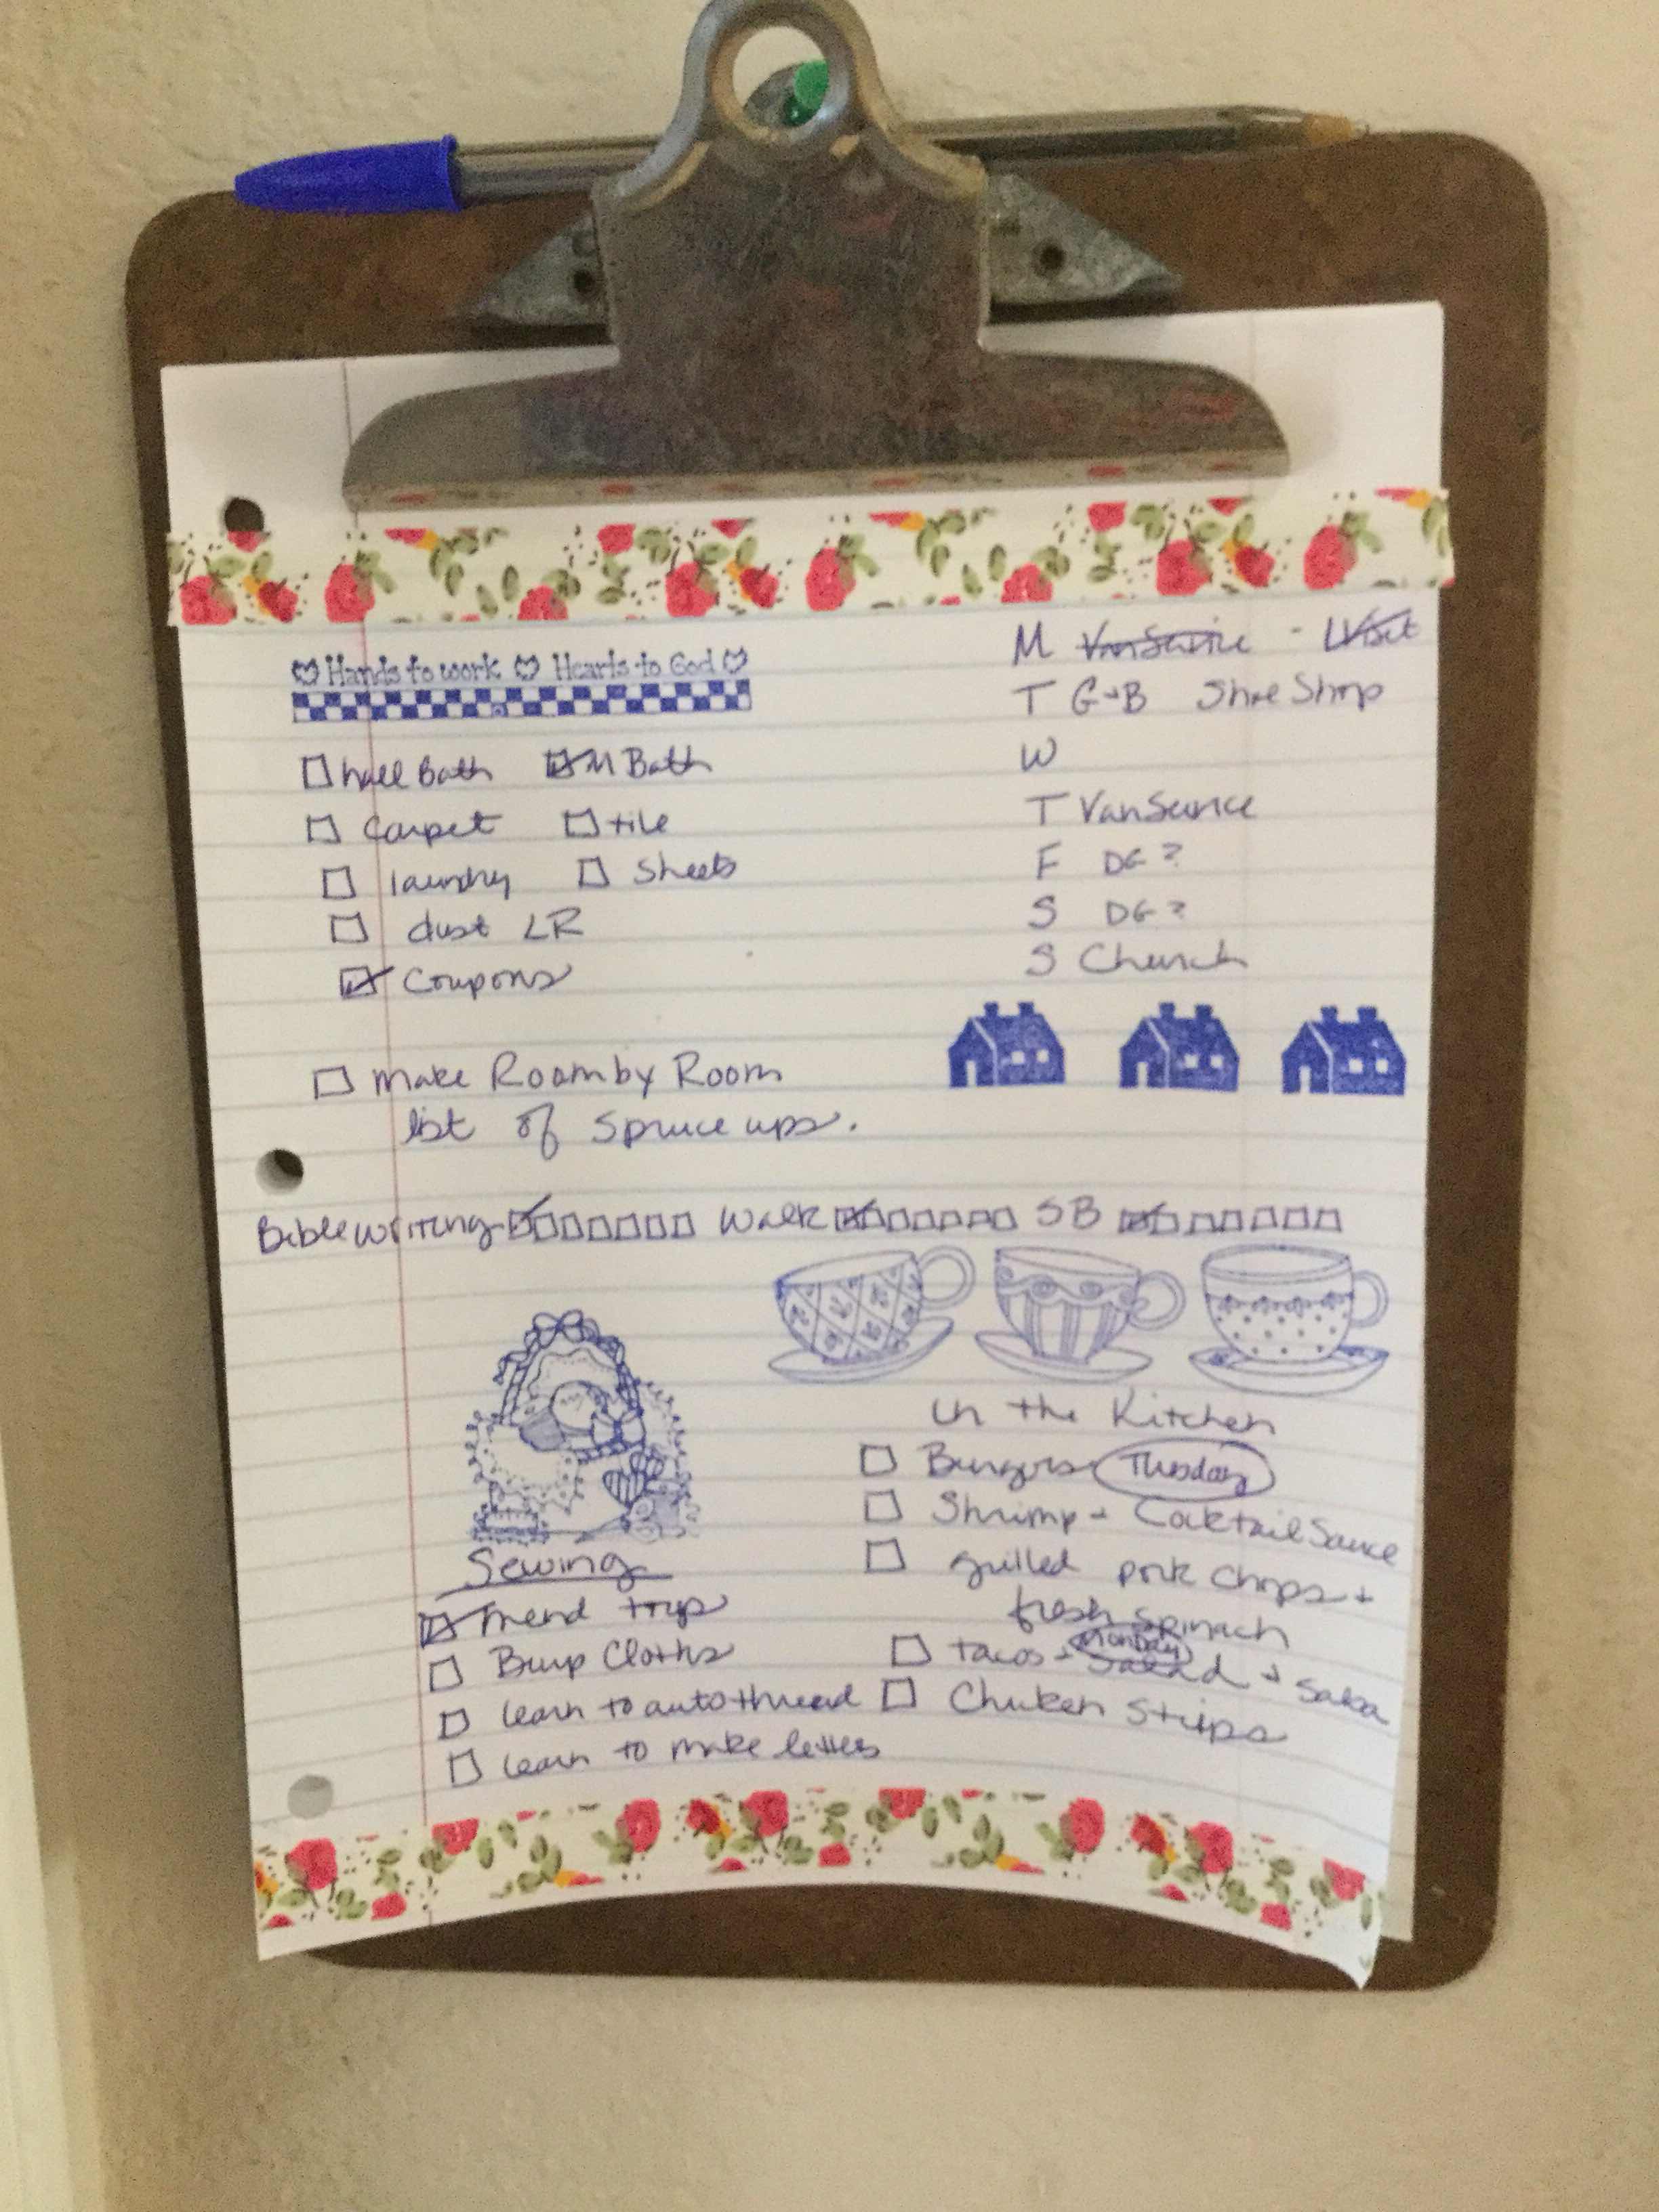 Hands to work Hearts to God
hall Bath M Bath
Carpet tile
laundry Sheets
dust LR
Coupons
make Room by Room
list of Spruce ups.
M Van Service - Visit
T G+B Shoe Shop
W
T Van Service
F DG?
S DG?
S Church
Bible writing Walk SB
Sewing
Mend
Burp Cloths
learn to autothread
learn to make letters
in the Kitchen
Burgers Tuesday
Shrimp + Cocktail Sauce
grilled pork chops +
fresh Spinach
Monday
tacos + Salad + Salsa
Chicken Strips